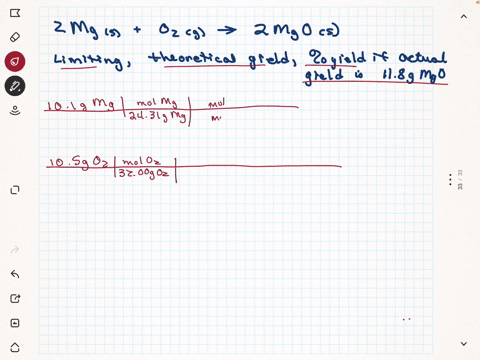 2 Mg (s) + O2 (g) → 2 MgO (s)
Limiting, theoretical yield, % yield if actual
yield is 11.8g MgO
10.1g Mg | mol Mg | mol
24.31g Mg | m
10.5g O2 | mol O2
32.00g O2